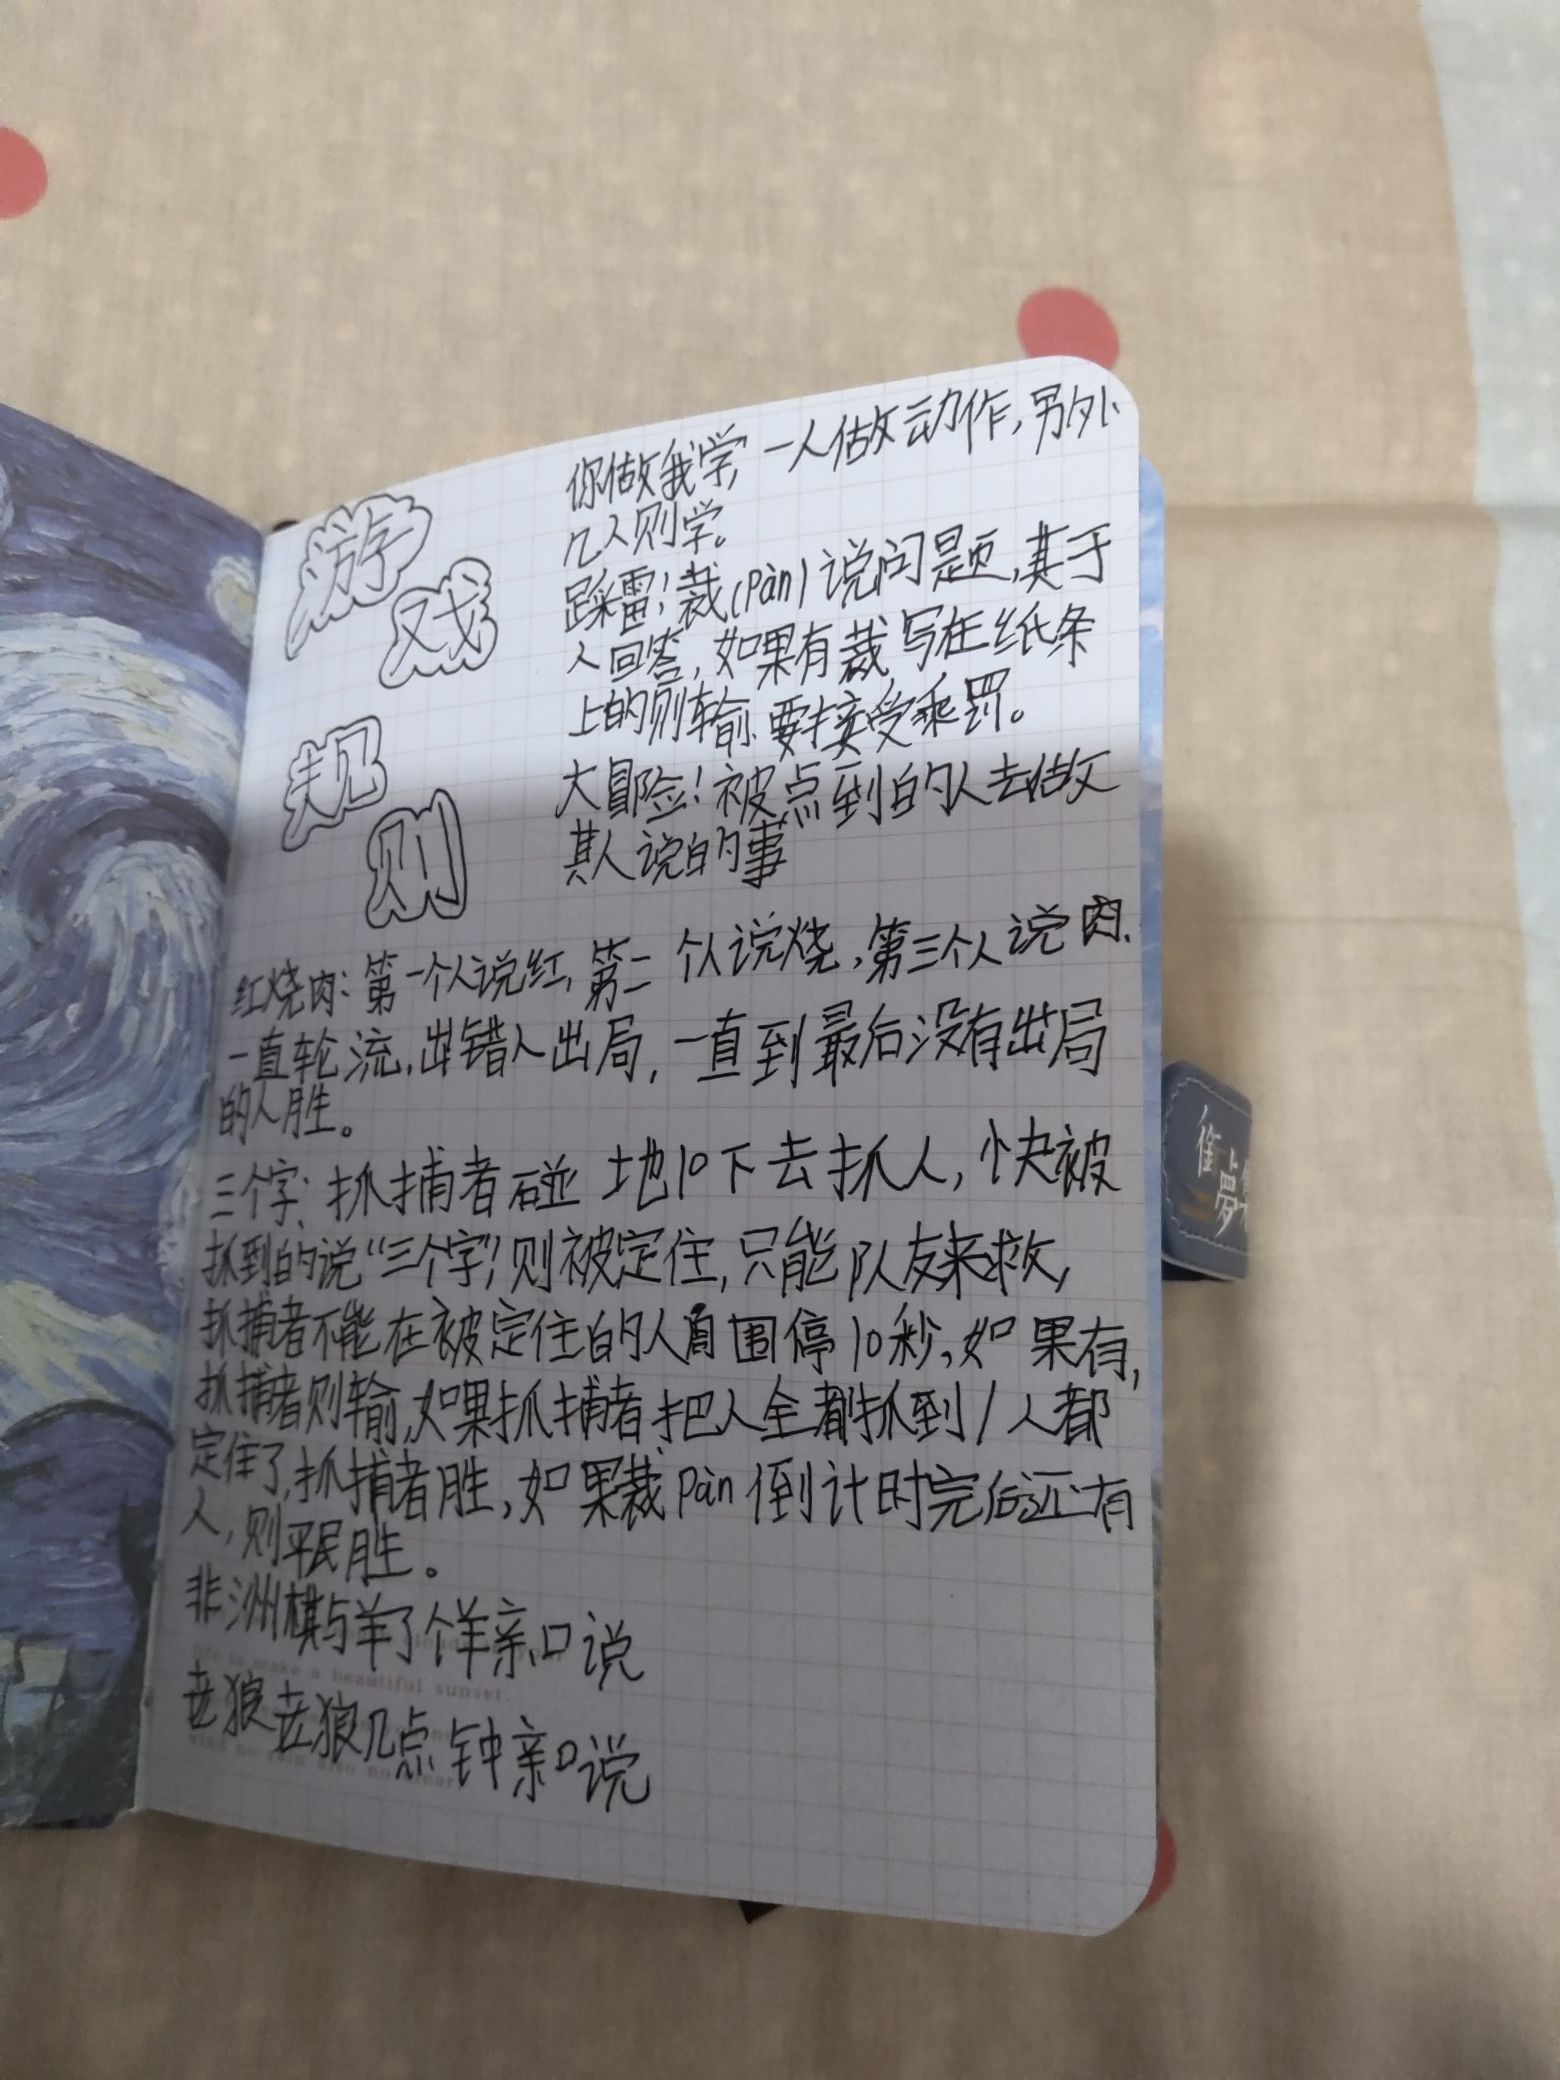 游戏
规则
你做我学，一人做动作，另外
几人则学。
踩雷！裁(Pàn)说问题，其于
人回答，如果有裁写在纸条
上的则输，要接受乘罚。
大冒险！被点到的人去做
其人说的事
红烧肉：第一个人说红，第二个人说烧，第三个人说肉．
一直轮流，出错人出局，一直到最后没有出局
的人胜。
三个字：抓捕者碰地10下去抓人，快被
抓到的说“三个字”！则被定住，只能队友来救，
抓捕者不能在被定住的人围停10秒，如果有，
抓捕者则输，如果抓捕者把人全都抓到/人都
定住了，抓捕者胜，如果裁Pàn倒计时完后还有
人，则平民胜。
非洲棋与羊了个羊亲口说
老狼老狼几点钟亲口说
make a beautiful sunset.
衔上
夢